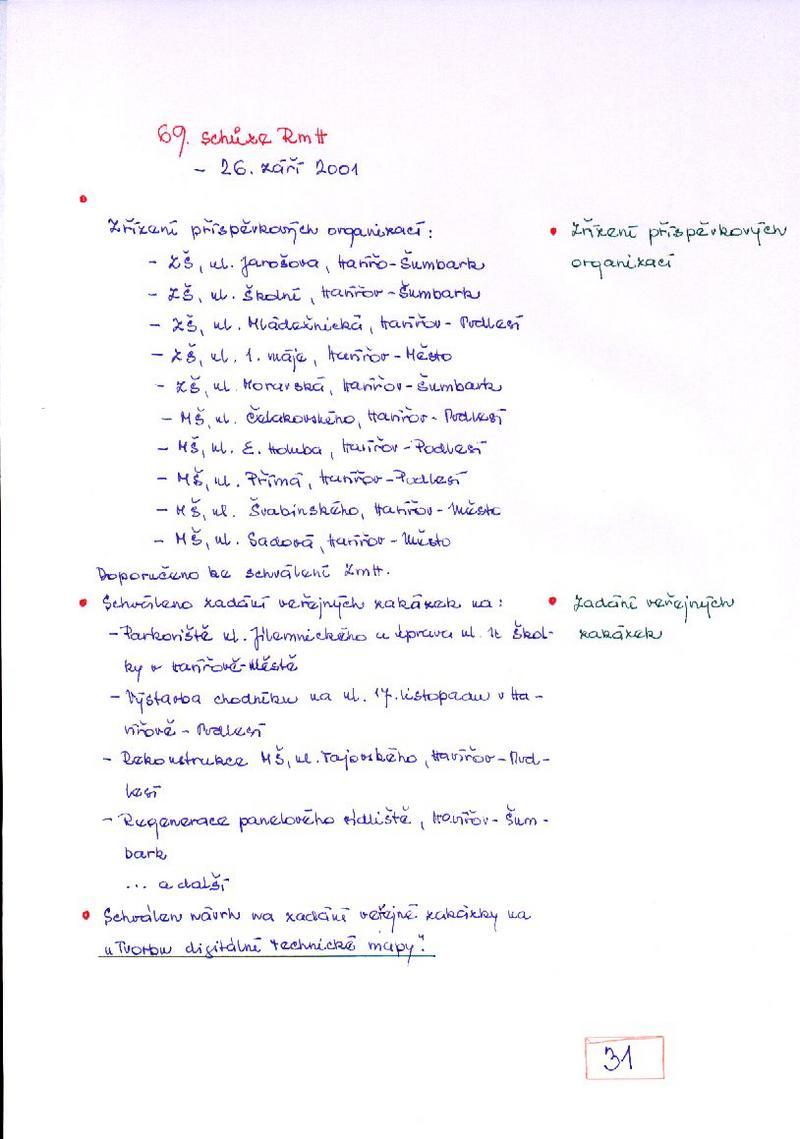 69. schůze RmH
- 26. září 2001
Zřízení příspěvkových organizací:
- ZŠ, ul. Jarošova, Havířo-Šumbark
- ZŠ, ul. Školní, Havířov-Šumbark
- ZŠ, ul. Mládežnická, Havířov-Podlesí
- ZŠ, ul. 1. máje, Havířov-Město
- ZŠ, ul. Moravská, Havířov-Šumbark
- MŠ, ul. Čelakovského, Havířov-Podlesí
- MŠ, ul. E. Holuba, Havířov-Podlesí
- MŠ, ul. Přímá, Havířov-Podlesí
- MŠ, ul. Švabinského, Havířov-Město
- MŠ, ul. Sadová, Havířov-Město
Doporučeno ke schválení ZmH.
Zřízení příspěvkových
organizací
Schváleno zadání veřejných zakázek na:
- Parkoviště ul. Jilemnického a úprava ul. Ke Škol-
ky v Havířově-Městě
- Výstavba chodníku na ul. 17. listopadu v Ha-
vířově - Podlesí
- Rekonstrukce MŠ, ul. Tajovského, Havířov-Pod-
lesí
- Regenerace panelového sídliště, Havířov-Šum-
bark
... a další
Zadání veřejných
zakázek
Schválen návrh na zadání veřejné zakázky na
"Tvorbu digitální technické mapy".
31